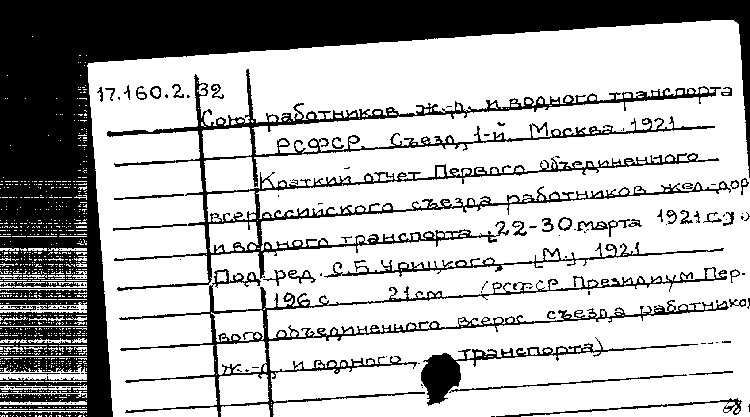 17.160.2.32
Союз работников ж.-д. и водного транспорта
РСФСР. Съезд, 1-й. Москва. 1921
Краткий отчет Первого объединенного
всероссийского съезда работников жел-дор
и водного транспорта [22-30 марта 1921 г.]
Под ред. С.Б. Урицкого, [М.], 1921
196 с. 21 cm (РСФСР. Президиум Пер-
вого объединенного всерос. съезда работников
ж.-д. и водного транспорта)